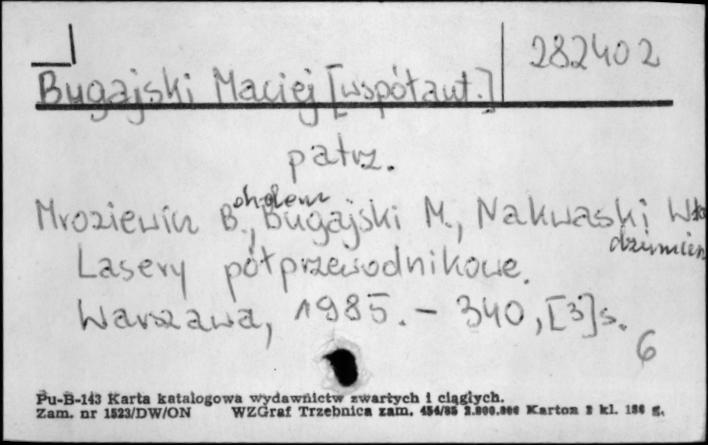 282402
Bugajski Maciej [współaut.]
patrz.
Mroziewicz B., Bugajski M., Nakwaski Wło
dzimierz
Lasery półprzewodnikowe.
Warszawa, 1985. - 340, [3] s.
6
Pu-B-143 Karta katalogowa wydawnictw zwartych i ciągłych.
Zam. nr 1523/DW/ON WZGraf Trzebnica zam. 454/85 2.000.000 Karton 2 kl. 180 g.